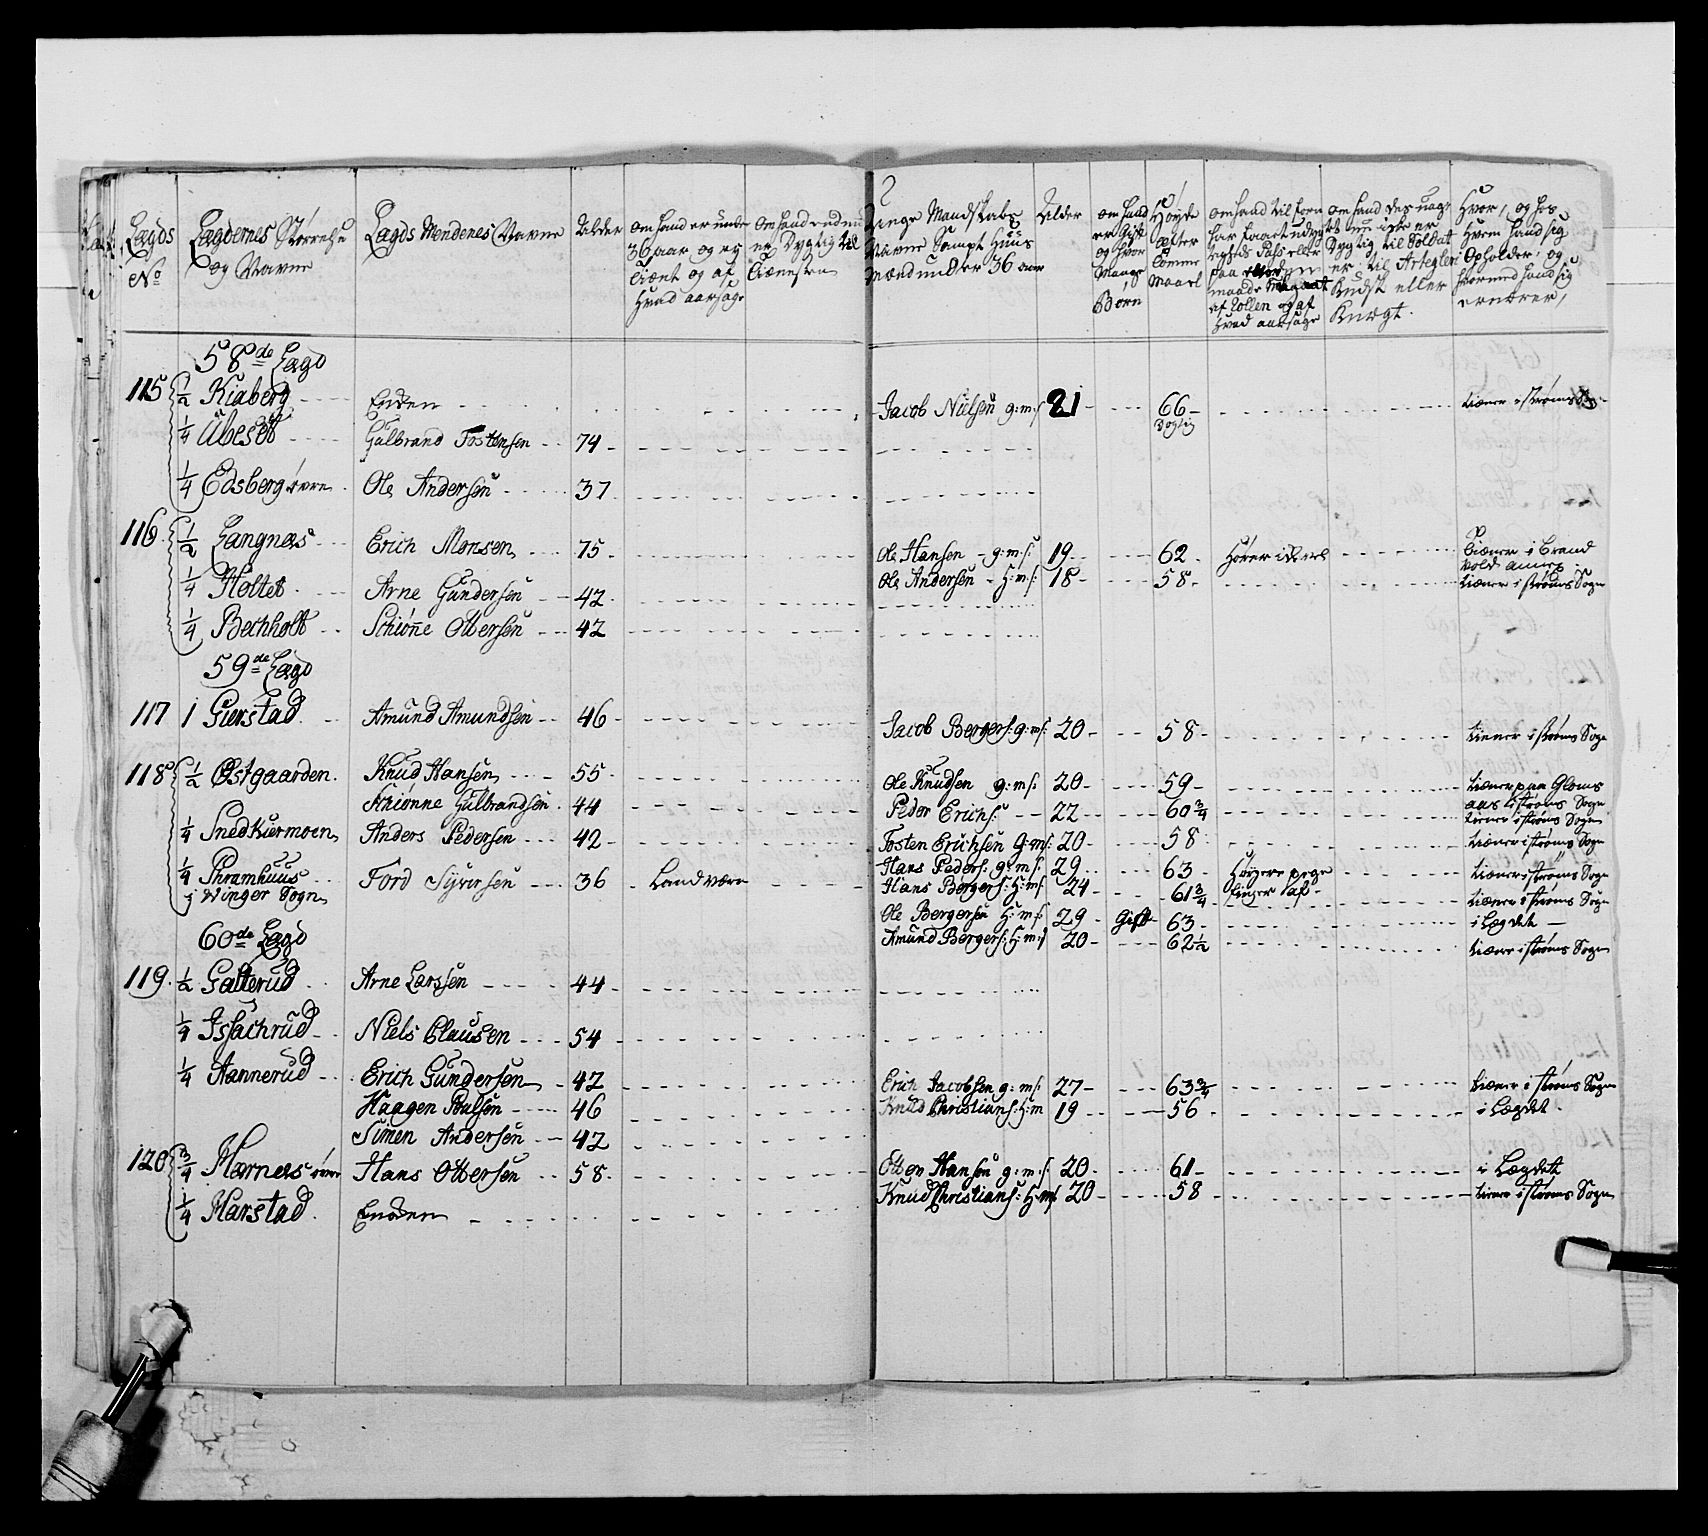 Lægds
No
Lægdernes Størrelse
og Navne
Lægds Mendenes Navne
Alder
om hand er under
36 aar og ej
tiænt og af
hvad aarsage
om hand endnu
er dygtig til
tiænesten
Unge Mandskabs
Navne Sampt Huus
mænd under 36 aar
Alder
om hand
er Gift
og hvor
Mange
Børn
Høyde
efter
Tomme
Maael
om hand tilforn
har faaet udygtigheds Pass eller
paa
maade
af Rollen og af
hvad aarsage
om hand des uagtet nu icke er
Dygtig til Soldat
er til Artegleri
Kudsk eller
Knægt.
Hvor, og hos
hvem hand sig
Opholder, og
hvormed hand sig
ernerer,
58de Lægd
115 1/2 Kiaberg Enken Jacob Nielsen g:m:s 21 66 tiæner i strøms Sogn
dogtig
1/4 Ubeset Gulbrand Tostensen 74
1/4 Edsberg øvre Ole Andersen 37
116 1/2 Langnæs Erich Monsen 75 Ole Hansen g:m:s: 19 62 Hører ilde tiæner i Brand
vold annex
1/4 Holtet Arne Gundersen 42 Ole Andersen H:m:s: 18 58 tiæner i strøms Sogn
1/4 Bechholt Schiønne Ottersen 42
59de Lægd
117 1 Gierstad Amund Amundsen 46 Jacob Bergers: g:m:s: 20 58 tiener i strøms Sogn
118 1/2 Østgaarden Knud Hansen 55 Ole Knudsen g:m:s: 20 59 tiæner paa Gloms
aas i strøms Sogn
Schiønne Gulbrandsen 44 Peder Erichs: 22 60 3/4 tiener i strøms Sogn
1/4 Snedkiermoen Anders Pedersen 42 Tosten Erichsen g:m:s: 20 58 tiæner i strøms Sogn
1/4 Skramhuus Tord Syversen 36 Landværn Hans Peders: g:m:s: 29 63 Høyere pege tiæner i strøms Sogn
i Winger Sogn Hans Bergers: H:m:s: 24 61 3/4 finger af tiæner i strøms Sogn
Ole Bergersen H:m:s: 29 Gift 63 i Lægdet
60de Lægd
Amund Bergers: H:m:s 20 62 1/2 tiæner i strøms Sogn
119 1/2 Galterud Arne Larssen 44
1/4 Issachrud Niels Clausen 54
1/4 Aannerud Erich Gundersen 42 Erich Jacobsen g:m:s: 27 63 3/4 tiæner i strøms Sogn
Haagen Poulsen 46 Knud Christians: H:m 19 56 i Lægdet
Simen Andersen 42
120 3/4 Mærnæs øvre Hans Ottersen 58 Otter Hansen g:m:s: 20 61 i Lægdet
1/4 Harstad Enken Knud Christians: H:m: 20 58 tiener i strøms Sogn